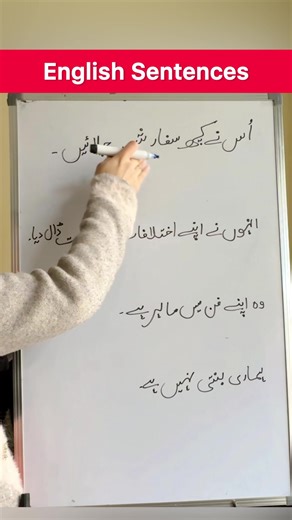 English Sentences
اُس نے کچھ سفارش
انہوں نے اپنے ڈال دیا۔
وہ اپنے فن میں ماہر ہے۔
ہماری بنتی نہیں ہے